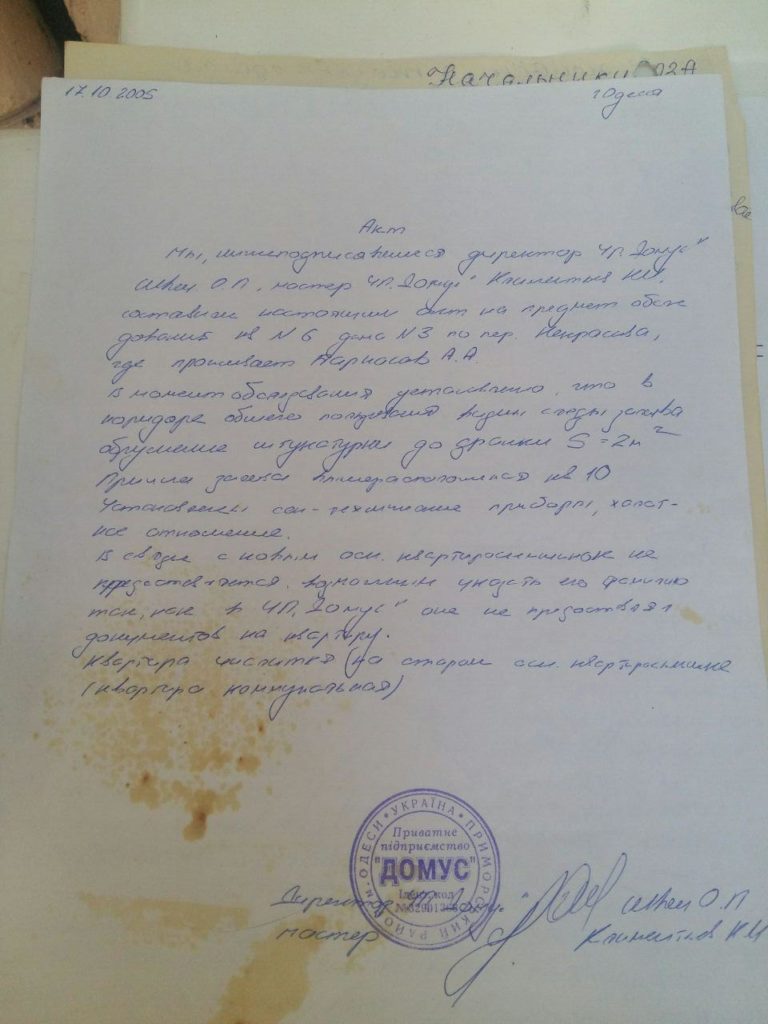 Начальнику
17.10 2005
г Одесса
Акт
Мы, нижеподписавшиеся директор ЧП „Домус"
О.П., мастер ЧП „Домус" Климентьев Н.М.
составили настоящий акт на предмет обсле
дования кв N 6 дома N 3 по пер. Некрасова,
где проживает А.А.
В момент обследования установлено, что в
коридоре общего пользования видны следы залива
обрушение штукатурки до дранки S = 2м²
Причина залива вышерасположенная кв 10
Установлены сан-технические приборы, халат-
ное отношение.
В связи с новым осн. квартиросъемщиком не
представляется возможным указать его фамилию
так, как в ЧП „Домус" они не предоставил
документов на квартиру.
Квартира числится (на старом осн. квартиросъемщике
(квартира коммунальная)
УКРАЇНА • ПРИМОРСЬКИЙ РАЙОН М. ОДЕСИ
Приватне
підприємство
"ДОМУС"
Ідент. код
Директор ЧП „Домус" О.П
мастер Климентьев Н.М